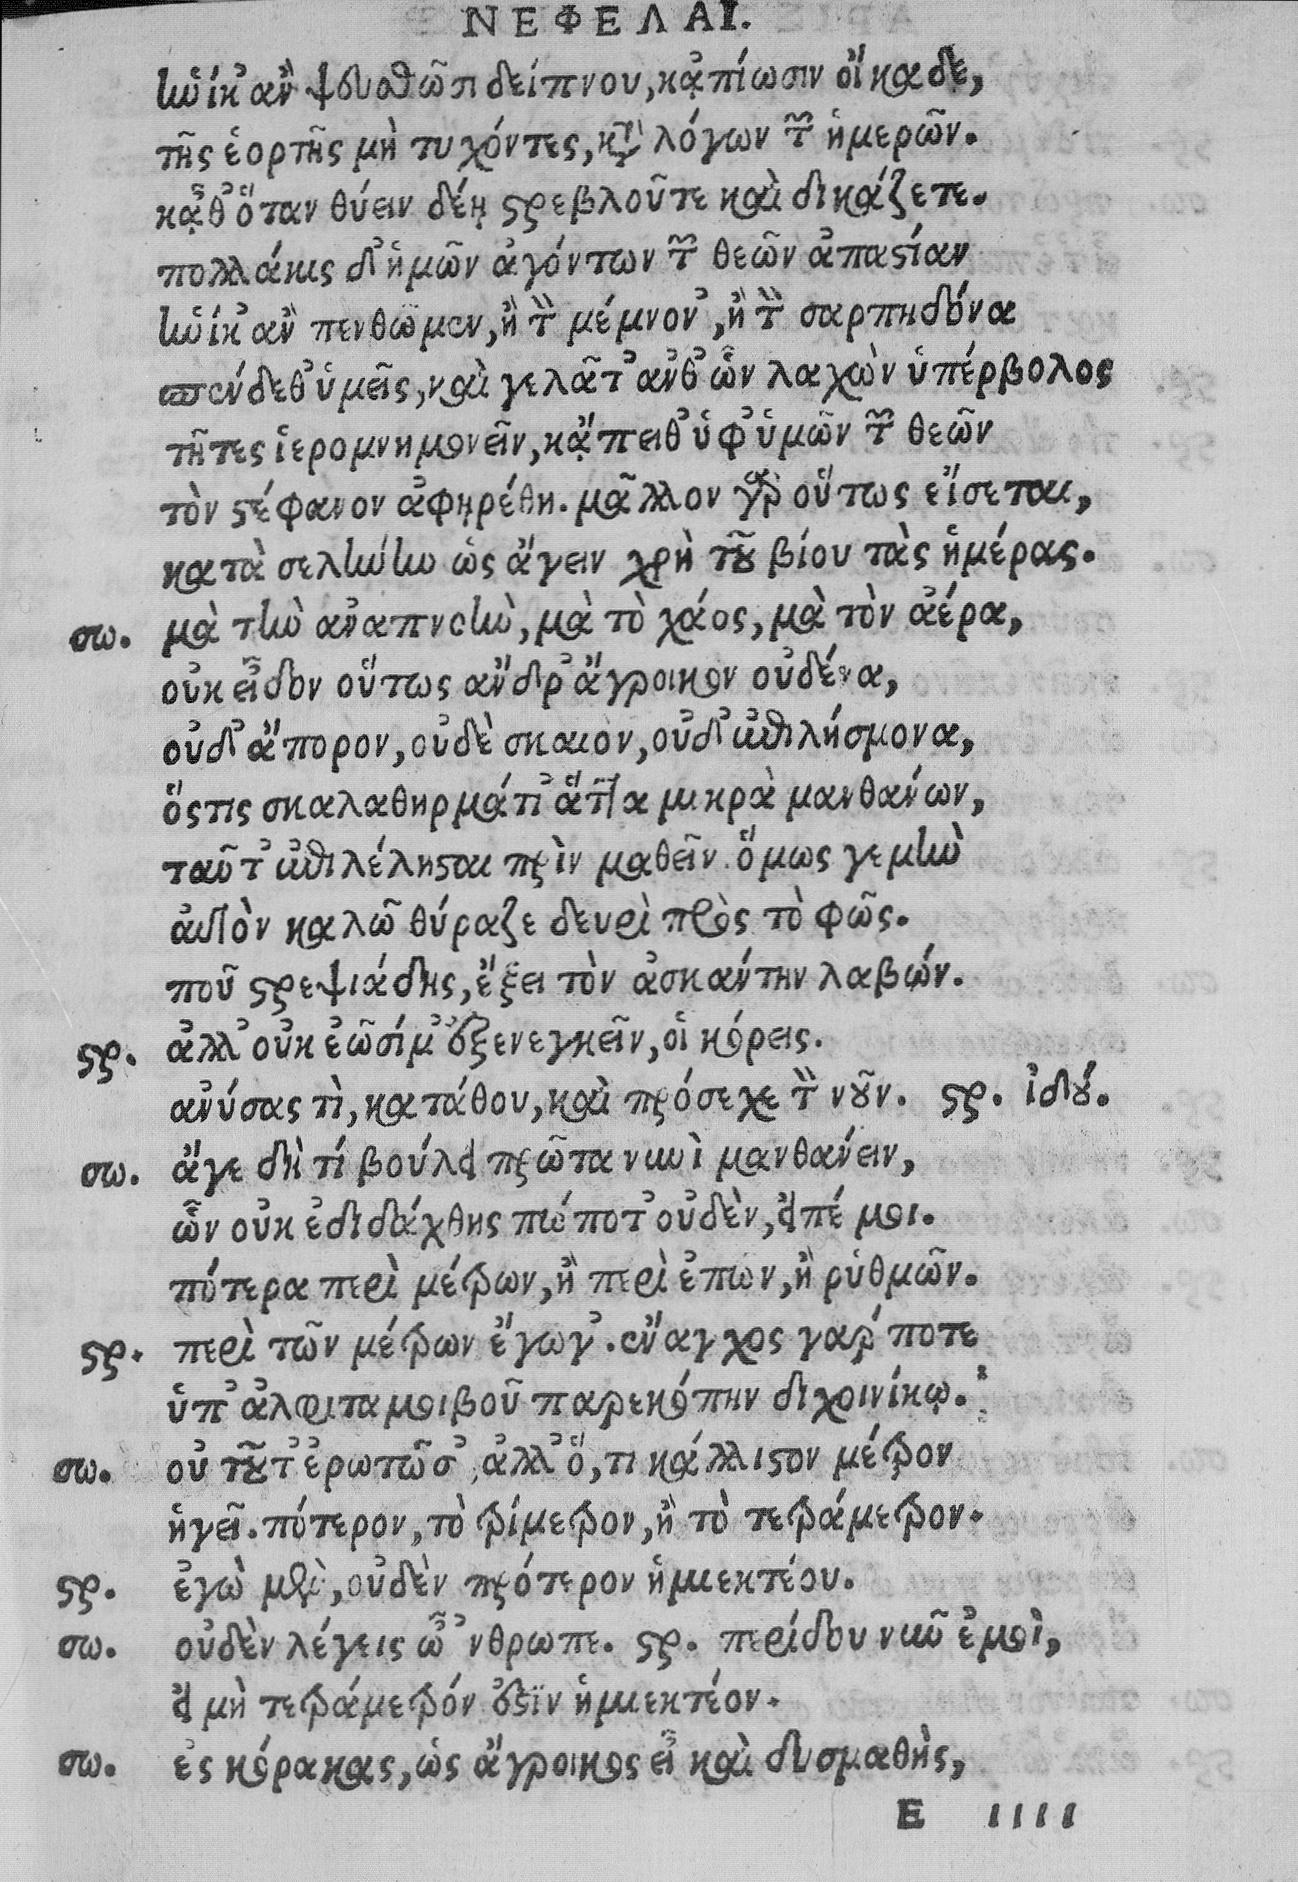 ΝΕΦΕΛΑΙ.
ἡνίκ' ἂν ψευσθῶσι δείπνου, κᾀπίωσιν οἴκαδε,
τῆς ἑορτῆς μὴ τυχόντες, κατὰ λόγον τῶν ἡμερῶν.
κᾆθ' ὅταν θύειν δέῃ στρεβλοῦτε καὶ δικάζετε.
πολλάκις δ' ἡμῶν ἀγόντων τῶν θεῶν ἀπαστίαν
ἡνίκ' ἂν πενθῶμεν, ἢ τὸν μέμνον', ἢ τὸν σαρπηδόνα
σπένδεθ' ὑμεῖς, καὶ γελᾶτ' ἀνθ' ὧν λαχὼν ὑπέρβολος
τῆτες ἱερομνημονεῖν, κᾄπειθ' ὑφ' ὑμῶν τῶν θεῶν
τὸν στέφανον ἀφῃρέθη. μᾶλλον γὰρ οὕτως εἴσεται,
κατὰ σελήνην ὡς ἄγειν χρὴ τοῦ βίου τὰς ἡμέρας.
σω. μὰ τὴν ἀναπνοὴν, μὰ τὸ χάος, μὰ τὸν ἀέρα,
οὐκ εἶδον οὕτως ἄνδρ' ἄγροικον οὐδένα,
οὐδ' ἄπορον, οὐδὲ σκαιὸν, οὐδ' ἐπιλήσμονα,
ὅστις σκαλαθηρμάτι' ἄττα μικρὰ μανθάνων,
ταῦτ' ἐπιλέλησται πρὶν μαθεῖν. ὅμως γεμὴν
αὐτὸν καλῶ θύραζε δευρὶ πρὸς τὸ φῶς.
ποῦ στρεψιάδης, ἔξει τὸν ἀσκάντην λαβών.
στρ. ἀλλ' οὐκ ἐῶσίμ' ἐξενεγκεῖν, οἱ κόρεις.
ἀνύσας τὶ, κατάθου, καὶ πρόσεχε τὸν νοῦν. στρ. ἰδού.
σω. ἄγε δὴ τί βούλει πρῶτα νυνὶ μανθάνειν,
ὧν οὐκ ἐδιδάχθης πώποτ' οὐδὲν, εἰπέ μοι.
πότερα περὶ μέτρων, ἢ περὶ ἐπων, ἢ ρύθμῶν.
στρ. περὶ τῶν μέτρων ἔγωγ'. ἔναγχος γαρ' ποτε
ὑπ' ἀλφιταμοιβοῦ παρεκόπην διχοινίκῳ.
σω. οὐ τοῦτ' ἐρωτῶσ', ἀλλ' ὅ,τι κάλλιστον μέτρον
ἡγεῖ. πότερον, τὸ τρίμετρον, ἢ τὸ τετράμετρον.
στρ. ἐγὼ μὲν, οὐδὲν πρότερον ἡμιεκτέου.
σω. οὐδὲν λέγεις ὦ 'νθρωπε. στρ. περίδου νῦν ἐμοὶ,
εἰ μὴ τετράμετρόν ἐστὶν ἡμιεκτέον.
σω. ἐς κόρακας, ὡς ἄγροικος εἶ καὶ δυσμαθὴς,
E IIII